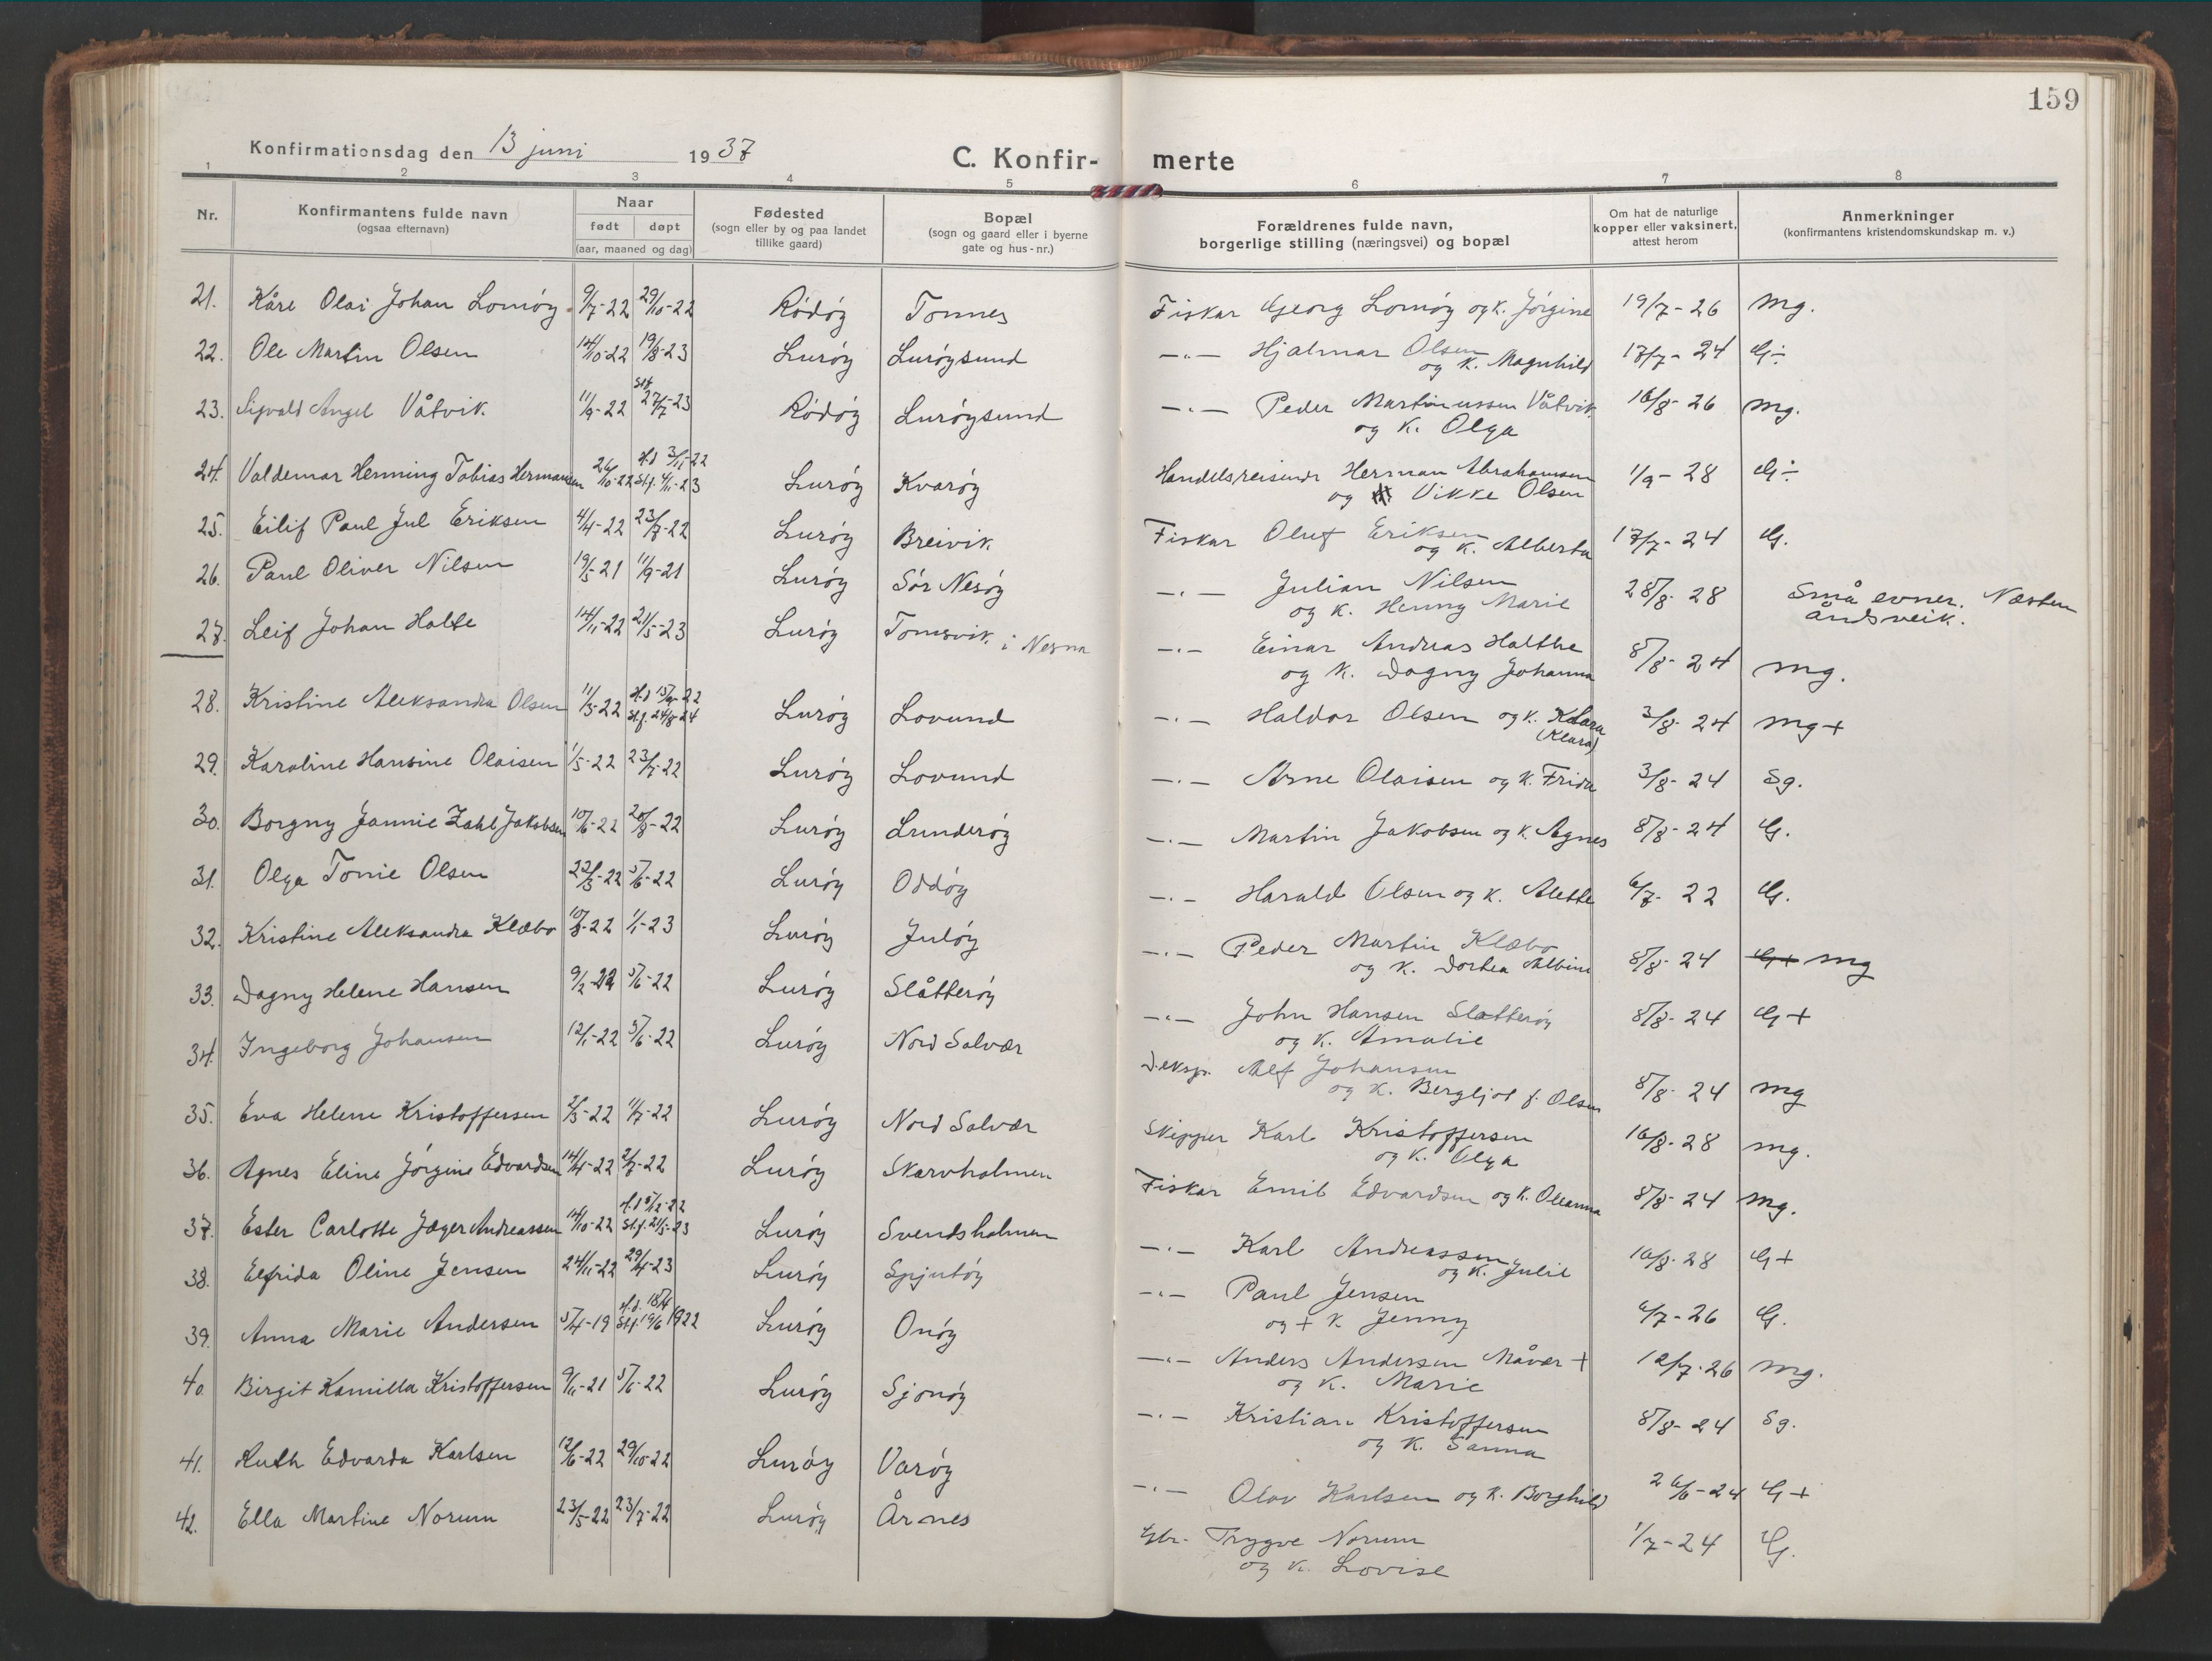 159
Konfirmationsdag den 13 juni 1937
C. Konfir- merte
1 2 3 4 5 6 7 8
Nr.
Konfirmantens fulde navn
(ogsaa efternavn)
Naar
født døpt
(aar, maaned og dag)
Fødested
(sogn eller by og paa landet
tillike gaard)
Bopæl
(sogn og gaard eller i byerne
gate og hus-nr.)
Forældrenes fulde navn,
borgerlige stilling (næringsvei) og bopæl
Om hat de naturlige
kopper eller vaksinert,
attest herom
Anmerkninger
(konfirmantens kristendomskundskap m. v.)
21. Kåre Olai Johan Lomöy 9/7-22 29/10-22 Rödöy Tonnes Fiskar Georg Lomöy og k. Jörgine 19/7-26 Mg.
22. Ole Martin Olsen 14/10-22 19/8-23 Luröy Luröysund —"— Hjalmar Olsen 17/7-24 G÷
og k. Magnhild
23. Sigvald Angel Våtvik. 11/9-22 Stf 27/7-23 Rödöy Luröysund —"— Peder Martinussen Våtvik 16/8-26 Mg.
og k. Olga
24. Valdemar Henning Tobias Hermansen 26/10-22 H.d 3/11-22 Stf. 4/11-23 Luröy Kvaröy Handelsreisende Herman Abrahamsen 1/9-28 G÷
og Vikke Olsen
25. Eilif Paul Jul Eriksen 4/4-22 23/7-22 Luröy Breivik Fiskar Oluf Eriksen 17/7-24 G.
og k. Alberta
26. Paul Oliver Nilsen 19/5-21 11/9-21 Luröy Sör Nesöy —"— Julian Nilsen 28/8-28 Små evner. Næsten
og k. Henny Marie åndsveik.
27. Leif Johan Halte 14/11-22 21/5-23 Luröy Tomsvik i Nesna —"— Einar Andreas Halthe 8/8-24 Mg.
og k. Dagny Johanna
28. Kristine Aleksandra Olsen 11/3-22 Luröy Lovund —"— Haldor Olsen og k. Klara 3/8-24 Mg+
(Klara)
29. Karoline Hansine Olaisen 1/5-22 23/7-22 Luröy Lovund —"— Arne Olaisen og k. Frida 3/8-24 Sg.
30. Borgny Jannie Zahl Jakobsen 10/6-22 20/8-22 Luröy Lunderöy —"— Martin Jakobsen og k. Agnes 8/8-24 G.
31. Olga Tonie Olsen 22/3-22 5/6-22 Luröy Oddöy —"— Harald Olsen og k. Alette 6/7-22 G.
32. Kristine Aleksandra Klæbo 10/8-22 1/1-23 Luröy Julöy —"— Peder Martin Klæbo 8/8-24 G+ Mg
og k. Dortea Albine
33. Dagny Helene Hansen 9/2-22 5/6-22 Luröy Slåtteröy —"— John Hansen Slatteröy 8/8-24 G+
og k. Amalie
34. Ingeborg Johansen 12/1-22 5/6-22 Luröy Nord Solvær D.eksp. Alf Johansen 8/8-24 Mg
og k. Bergljot f. Olsen
35. Eva Helene Kristoffersen 2/3-22 11/7-22 Luröy Nord Solvær Skipper Karl Kristoffersen 16/8-28 Mg.
og k. Olga
36. Agnes Eline Jörgine Edvardsen 14/4-22 2/7-22 Luröy Skarvholmen Fiskar Emil Edvardsen og k. Oleanna 8/8-24 Mg.
37. Ester Carlotte Jæger Andreassen 14/10-22 H.d 5/12-22 Stf. 21/5-23 Luröy Svendsholmen —"— Karl Andreassen 16/8-28 G+
og k. Julie
38. Elfrida Oline Jensen 24/11-22 29/4-23 Luröy Spjutöy —"— Paul Jensen 6/7-26 G.
og + k Jenny
39. Anna Marie Andersen 5/4-19 H.d. 18/4 Stf. 19/6 1922 Luröy Onöy —"— Anders Andersen Måvær + 12/7-26 Mg.
og k. Marie
40. Birgit Kamilla Kristoffersen 9/11-21 5/6-22 Luröy Sjonöy —"— Kristian Kristoffersen 8/8-24 Sg.
og k. Sanna
41. Ruth Edvarda Karlsen 12/6-22 29/10-22 Luröy Varöy —"— Olav Karlsen og k. Borghild 26/6-24 G+
42. Ella Martine Norum 23/5-22 23/7-22 Luröy Årnes Gbr. Trygve Norum 1/7-24 G.
og k. Lovise